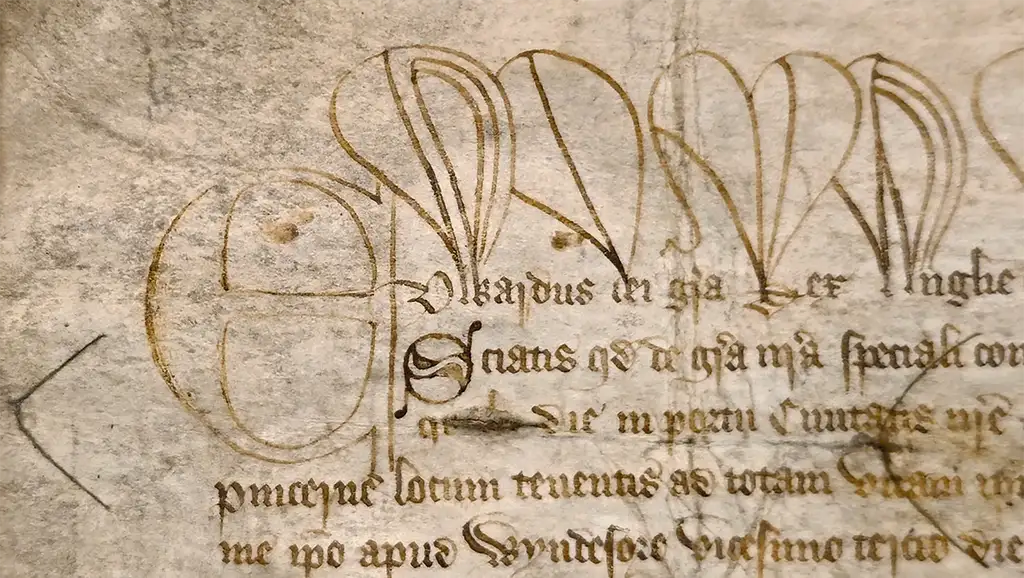 Edwardus dei gr̄a Rex Anglie
Sciatis qd de gr̄a nr̄a speciali con
die in portu Ciuitatis nr̄e
pincerne locum tenentis ad totam vitam
me ip̄o apud Wyndesore vicesimo tercio die